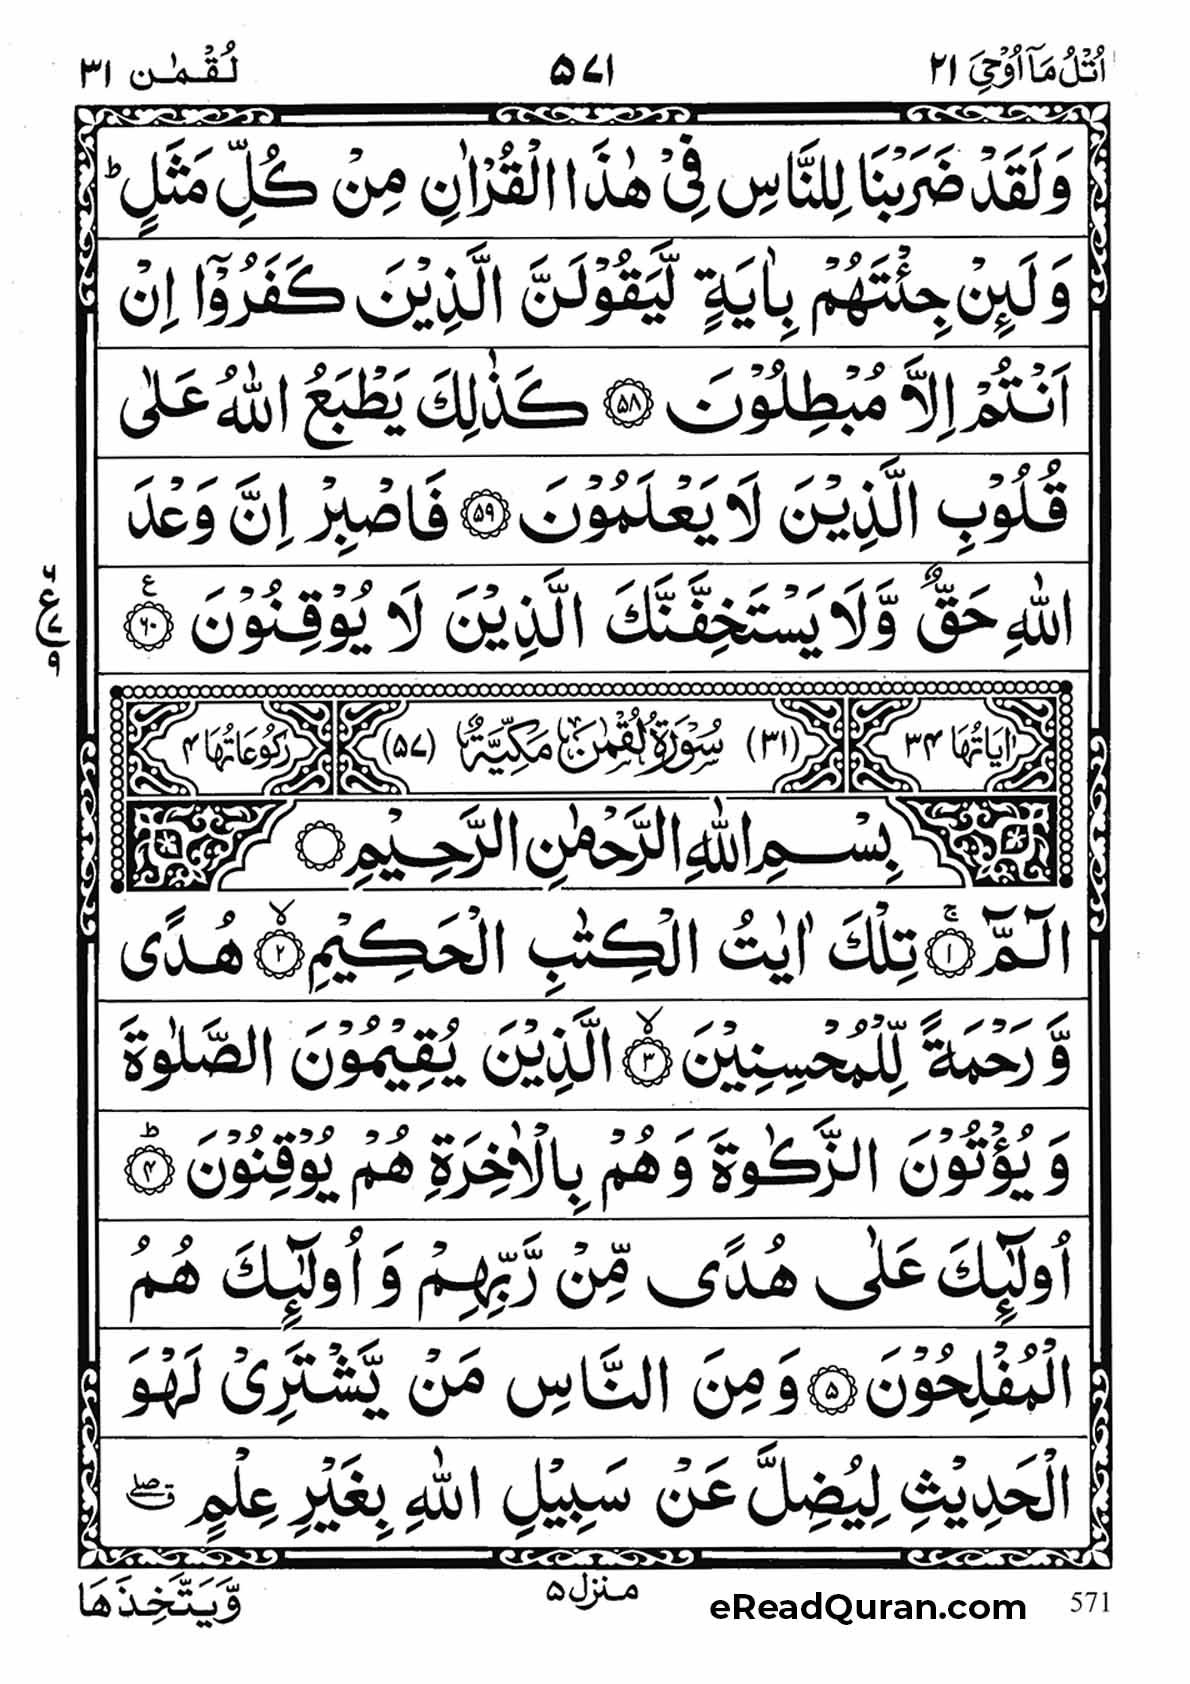 اُتْلُ مَآ اُوْحِيَ ٢١ ٥٧١ لُقْمٰن ٣١
وَلَقَدْ ضَرَبْنَا لِلنَّاسِ فِيْ هٰذَا الْقُرْاٰنِ مِنْ كُلِّ مَثَلٍ ؕ
وَلَىِٕنْ جِئْتَهُمْ بِاٰيَةٍ لَّيَقُوْلَنَّ الَّذِيْنَ كَفَرُوْۤا اِنْ
اَنْتُمْ اِلَّا مُبْطِلُوْنَ ۝۵۸ كَذٰلِكَ يَطْبَعُ اللّٰهُ عَلٰى
قُلُوْبِ الَّذِيْنَ لَا يَعْلَمُوْنَ ۝۵۹ فَاصْبِرْ اِنَّ وَعْدَ
اللّٰهِ حَقٌّ وَّلَا يَسْتَخِفَّنَّكَ الَّذِيْنَ لَا يُوْقِنُوْنَ ۝۶۰ ع
۶
ع
۷
۹
اٰيَاتُهَا ۳۴ (۳۱) سُوْرَةُ لُقْمٰنَ مَكِّيَّةٌ (۵۷) رُكُوْعَاتُهَا ۴
بِسْمِ اللّٰهِ الرَّحْمٰنِ الرَّحِيْمِ
الٓمّٓ ۝۱ ۚ تِلْكَ اٰيٰتُ الْكِتٰبِ الْحَكِيْمِ ۝۲ ۙ هُدًى
وَّرَحْمَةً لِّلْمُحْسِنِيْنَ ۝۳ ۙ الَّذِيْنَ يُقِيْمُوْنَ الصَّلٰوةَ
وَيُؤْتُوْنَ الزَّكٰوةَ وَهُمْ بِالْاٰخِرَةِ هُمْ يُوْقِنُوْنَ ۝۴ ؕ
اُولٰٓىِٕكَ عَلٰى هُدًى مِّنْ رَّبِّهِمْ وَاُولٰٓىِٕكَ هُمُ
الْمُفْلِحُوْنَ ۝۵ وَمِنَ النَّاسِ مَنْ يَّشْتَرِيْ لَهْوَ
الْحَدِيْثِ لِيُضِلَّ عَنْ سَبِيْلِ اللّٰهِ بِغَيْرِ عِلْمٍ ۖق
وَّيَتَّخِذَهَا منزل ۵ eReadQuran.com 571